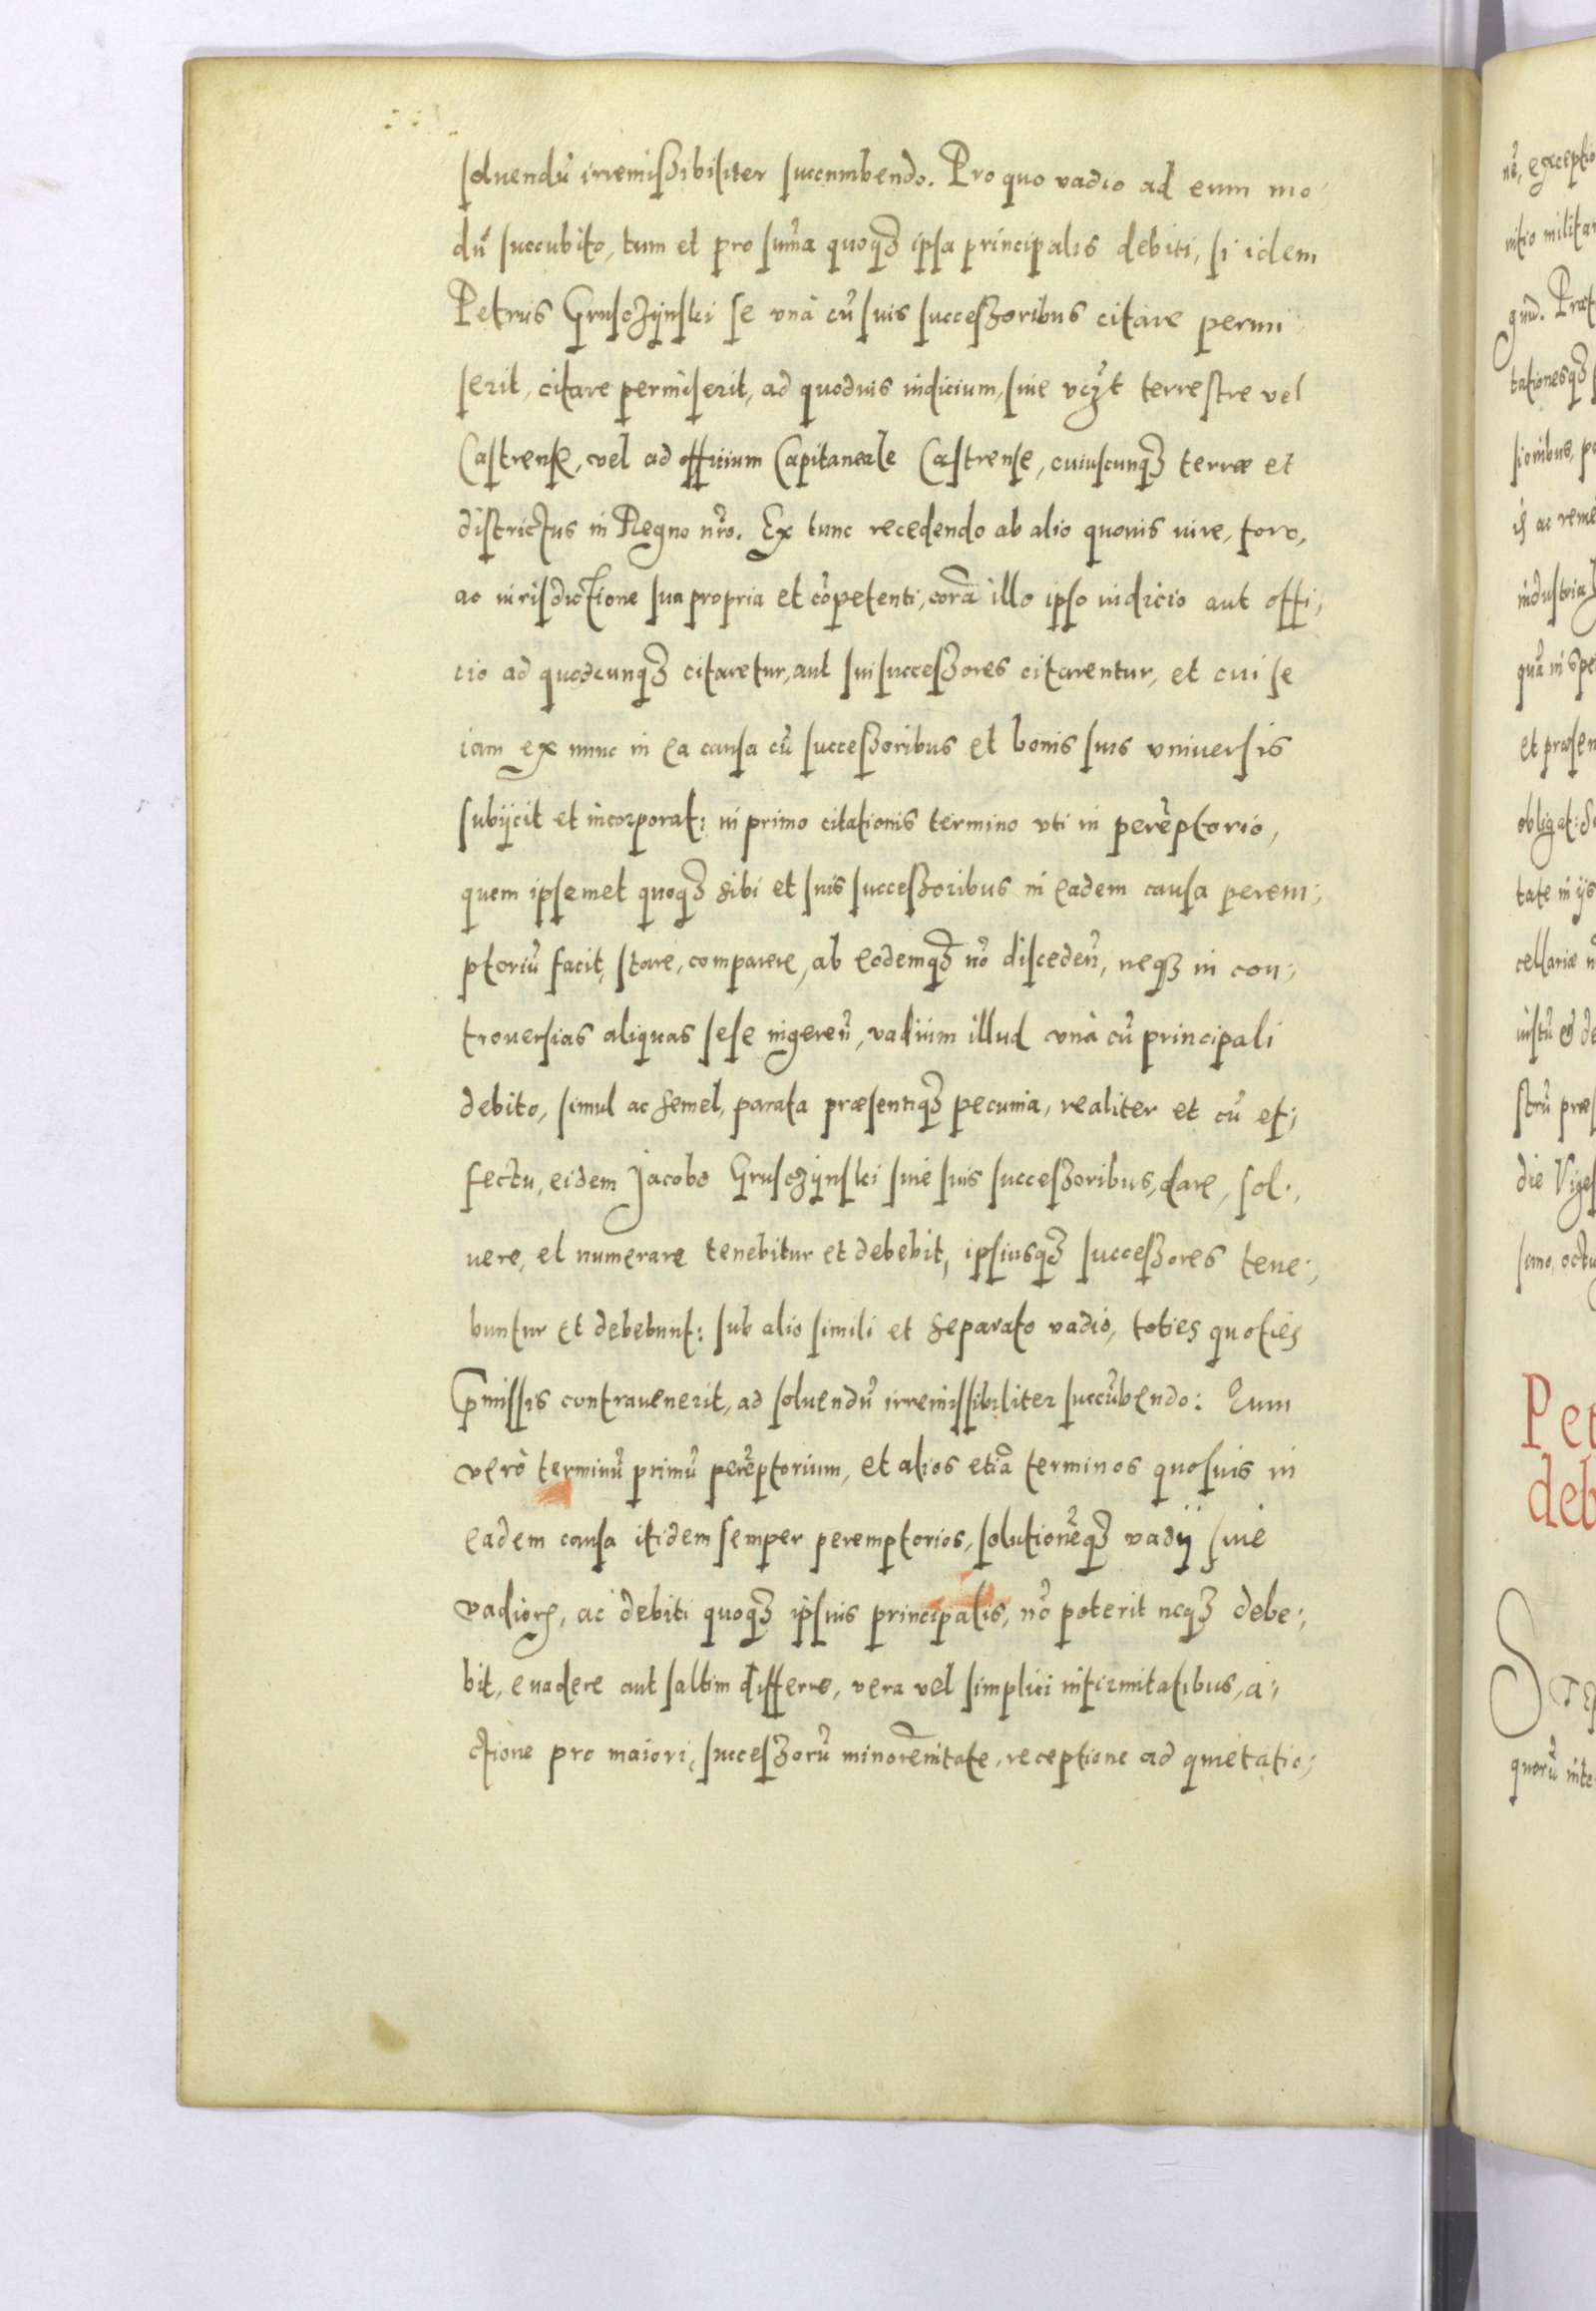 soluendũ irremißibiliter succumbendo. Pro quo vadio ad eum mo
dũ succubito, tum et pro sum̃a quoqȝ ipsa principalis debiti, si idem
Petrus Grusczÿnski se vnà cũ suis succeßoribus citare permi
serit, citare permiserit, ad quoduis iudicium, siue vczt terrestre vel
Castrense, vel ad officium Capitaneale Castrense, cuiuscunqȝ terræ et
districtus in Regno nr̃o. Ex tunc recedendo ab alio quouis iure, foro,
ac iurisdictione sua propria et cõpetenti, corã illo ipso iudicio aut offi;
cio ad quodcunqȝ citaretur, aut sui succeßores citarentur, et cui se
iam ex nunc in ea causa cũ succeßoribus et bonis suis vniuersis
subijcit et incorporat: in primo citationis termino vti in perẽptorio,
quem ipsemet quoqȝ sibi et suis succeßoribus in eadem causa perem;
ptoriũ facit, stare, comparere, ab eodemqȝ nõ disceden̄, neqȝ in con;
trouersias aliquas sese ingeren̄, vadium illud vnà cũ principali
debito, simul ac semel, parata præsentiqȝ pecunia, realiter et cũ ef;
fectu, eidem Jacobo Grusczÿnski siue suis succeßoribus, dare, sol;
uere, et numerare tenebitur et debebit, ipsiusqȝ succeßores tene;
buntur et debebunt: sub alio simili et separato vadio, toties quoties
p̃missis contrauenerit, ad soluendũ irremissibiliter succũbendo: Eum
verò terminũ primũ perẽptorium, et alios etiã terminos quosuis in
eadem causa itidem semper peremptorios, solutionẽqȝ vadij siue
vadiorꝝ, ac debiti quoqȝ ipsius principalis, nõ poterit neqȝ debe;
bit, euadere aut saltim differre, vera vel simplici infirmitatibus, a;
ctione pro maiori, succeßorũ minorẽnitate, receptione ad quietatio;